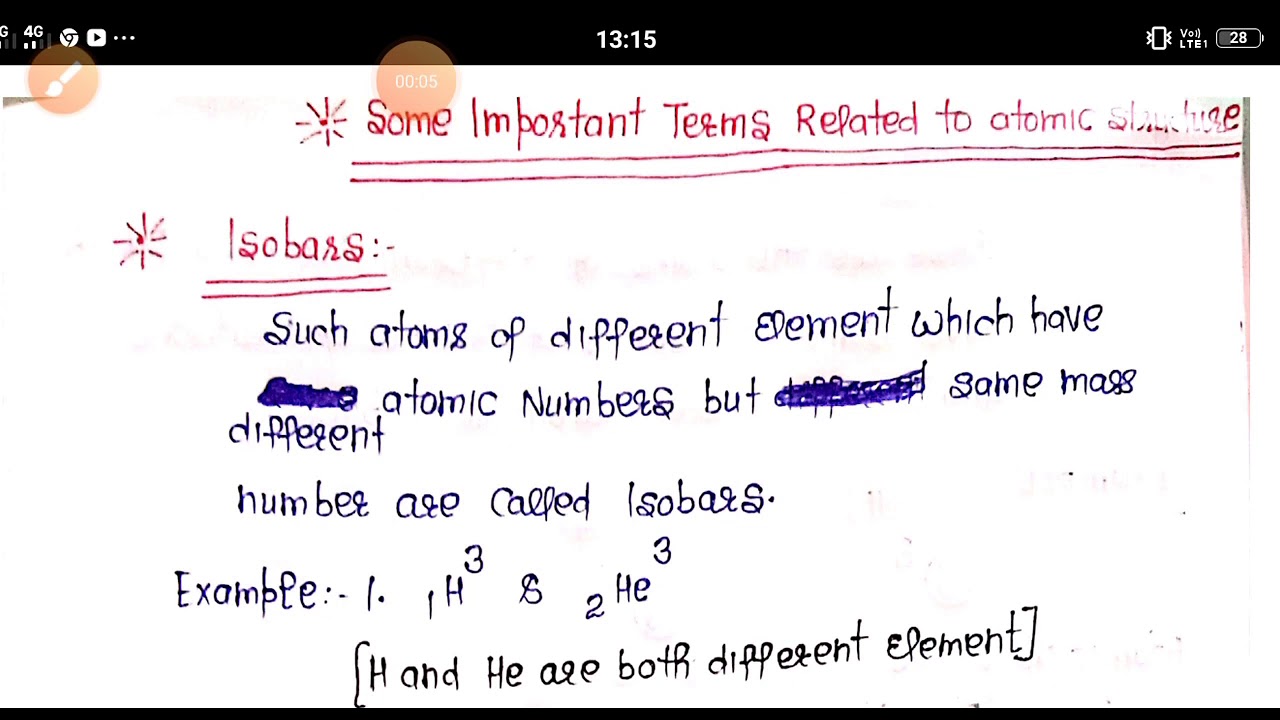 4G 13:15 Vo)) LTE1 28
00:05
Some Important Terms Related to atomic structure
Isobars:-
Such atoms of different element which have
atomic Numbers but same mass
different
number are called Isobars.
Example:- 1. ₁H³ & ₂He³
[H and He are both different element]